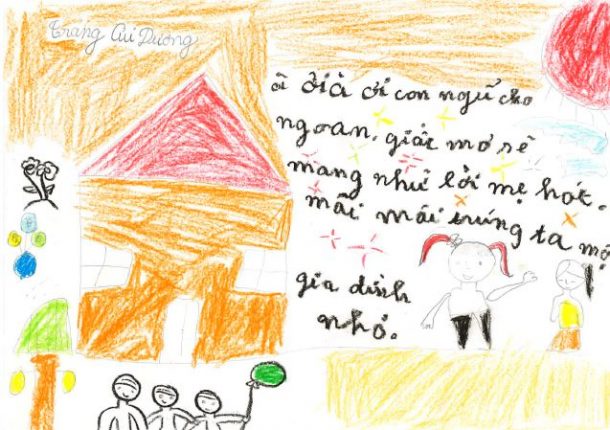 Trang Ái Dương
ầ ơi à ơi con ngủ cho
ngoan. giấc mơ sẽ
mang như lời mẹ hát.
mãi mãi trúng ta mộ
gia đình
nhỏ.